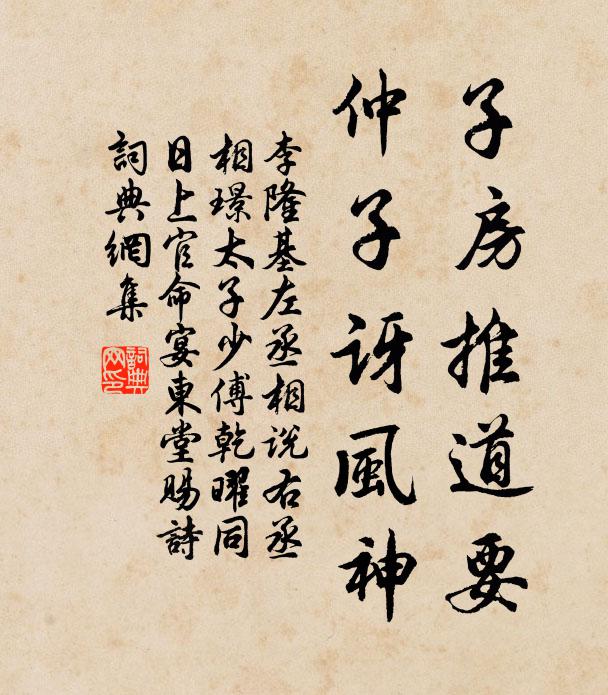 子房推道要
仲子訝風神
李隆基左丞相説右丞
相璟太子少傅乾曜同
日上官命宴東堂賜詩
詞典網集
詞典網印